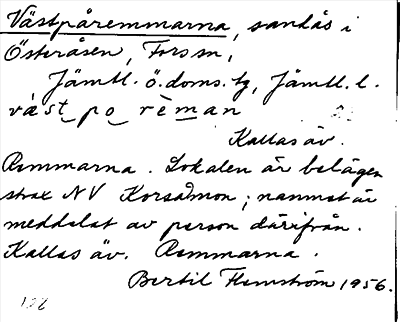 Västpåremmarna, sandås i
Österåsen, Fors sn,
Jämtl. ö. doms. tg, Jämtl. l.
väst po rèman
Kallas äv.
Remmarna. Lokalen är belägen
strax NV Korsåmon; namnet är
meddelat av person därifrån.
Kallas äv. Remmarna.
Bertil Flemström 1956.